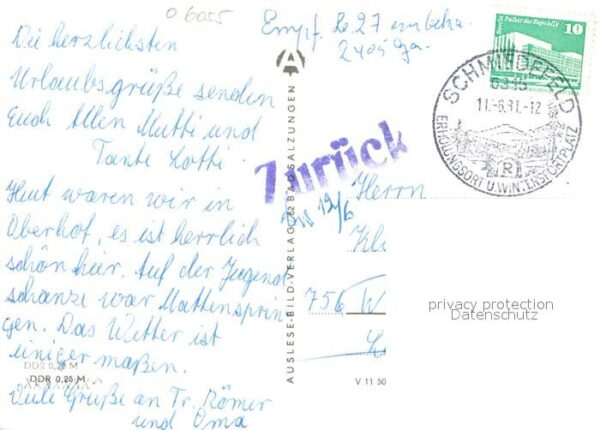 O 6055
Die herzlichsten
Urlaubsgrüße senden
Euch Allen Mutti und
Tante Lotti.
Heut waren wir in
Oberhof, es ist herrlich
schön hier. Auf der Jugend
schanze war Mattensprin
gen. Das Wetter ist
einigermaßen.
Viele Grüße an Fr. Römer
und Oma
DDR 0,25 M
DDR 0,25 M
A
AUSLESE-BILD-VERLAG 62 BAD SALZUNGEN
V 11 50
Empf. Le 27 unbeka.
2405 Ga.
Berlin Palast der Republik
10
SCHMIEDEFELD
6315
11.-6.81.-12
ERHOLUNGSORT U. WINTERSPORTPLATZ
(R)
Zurück
12/6
Herrn
Kl
756 W
privacy protection
Datenschutz